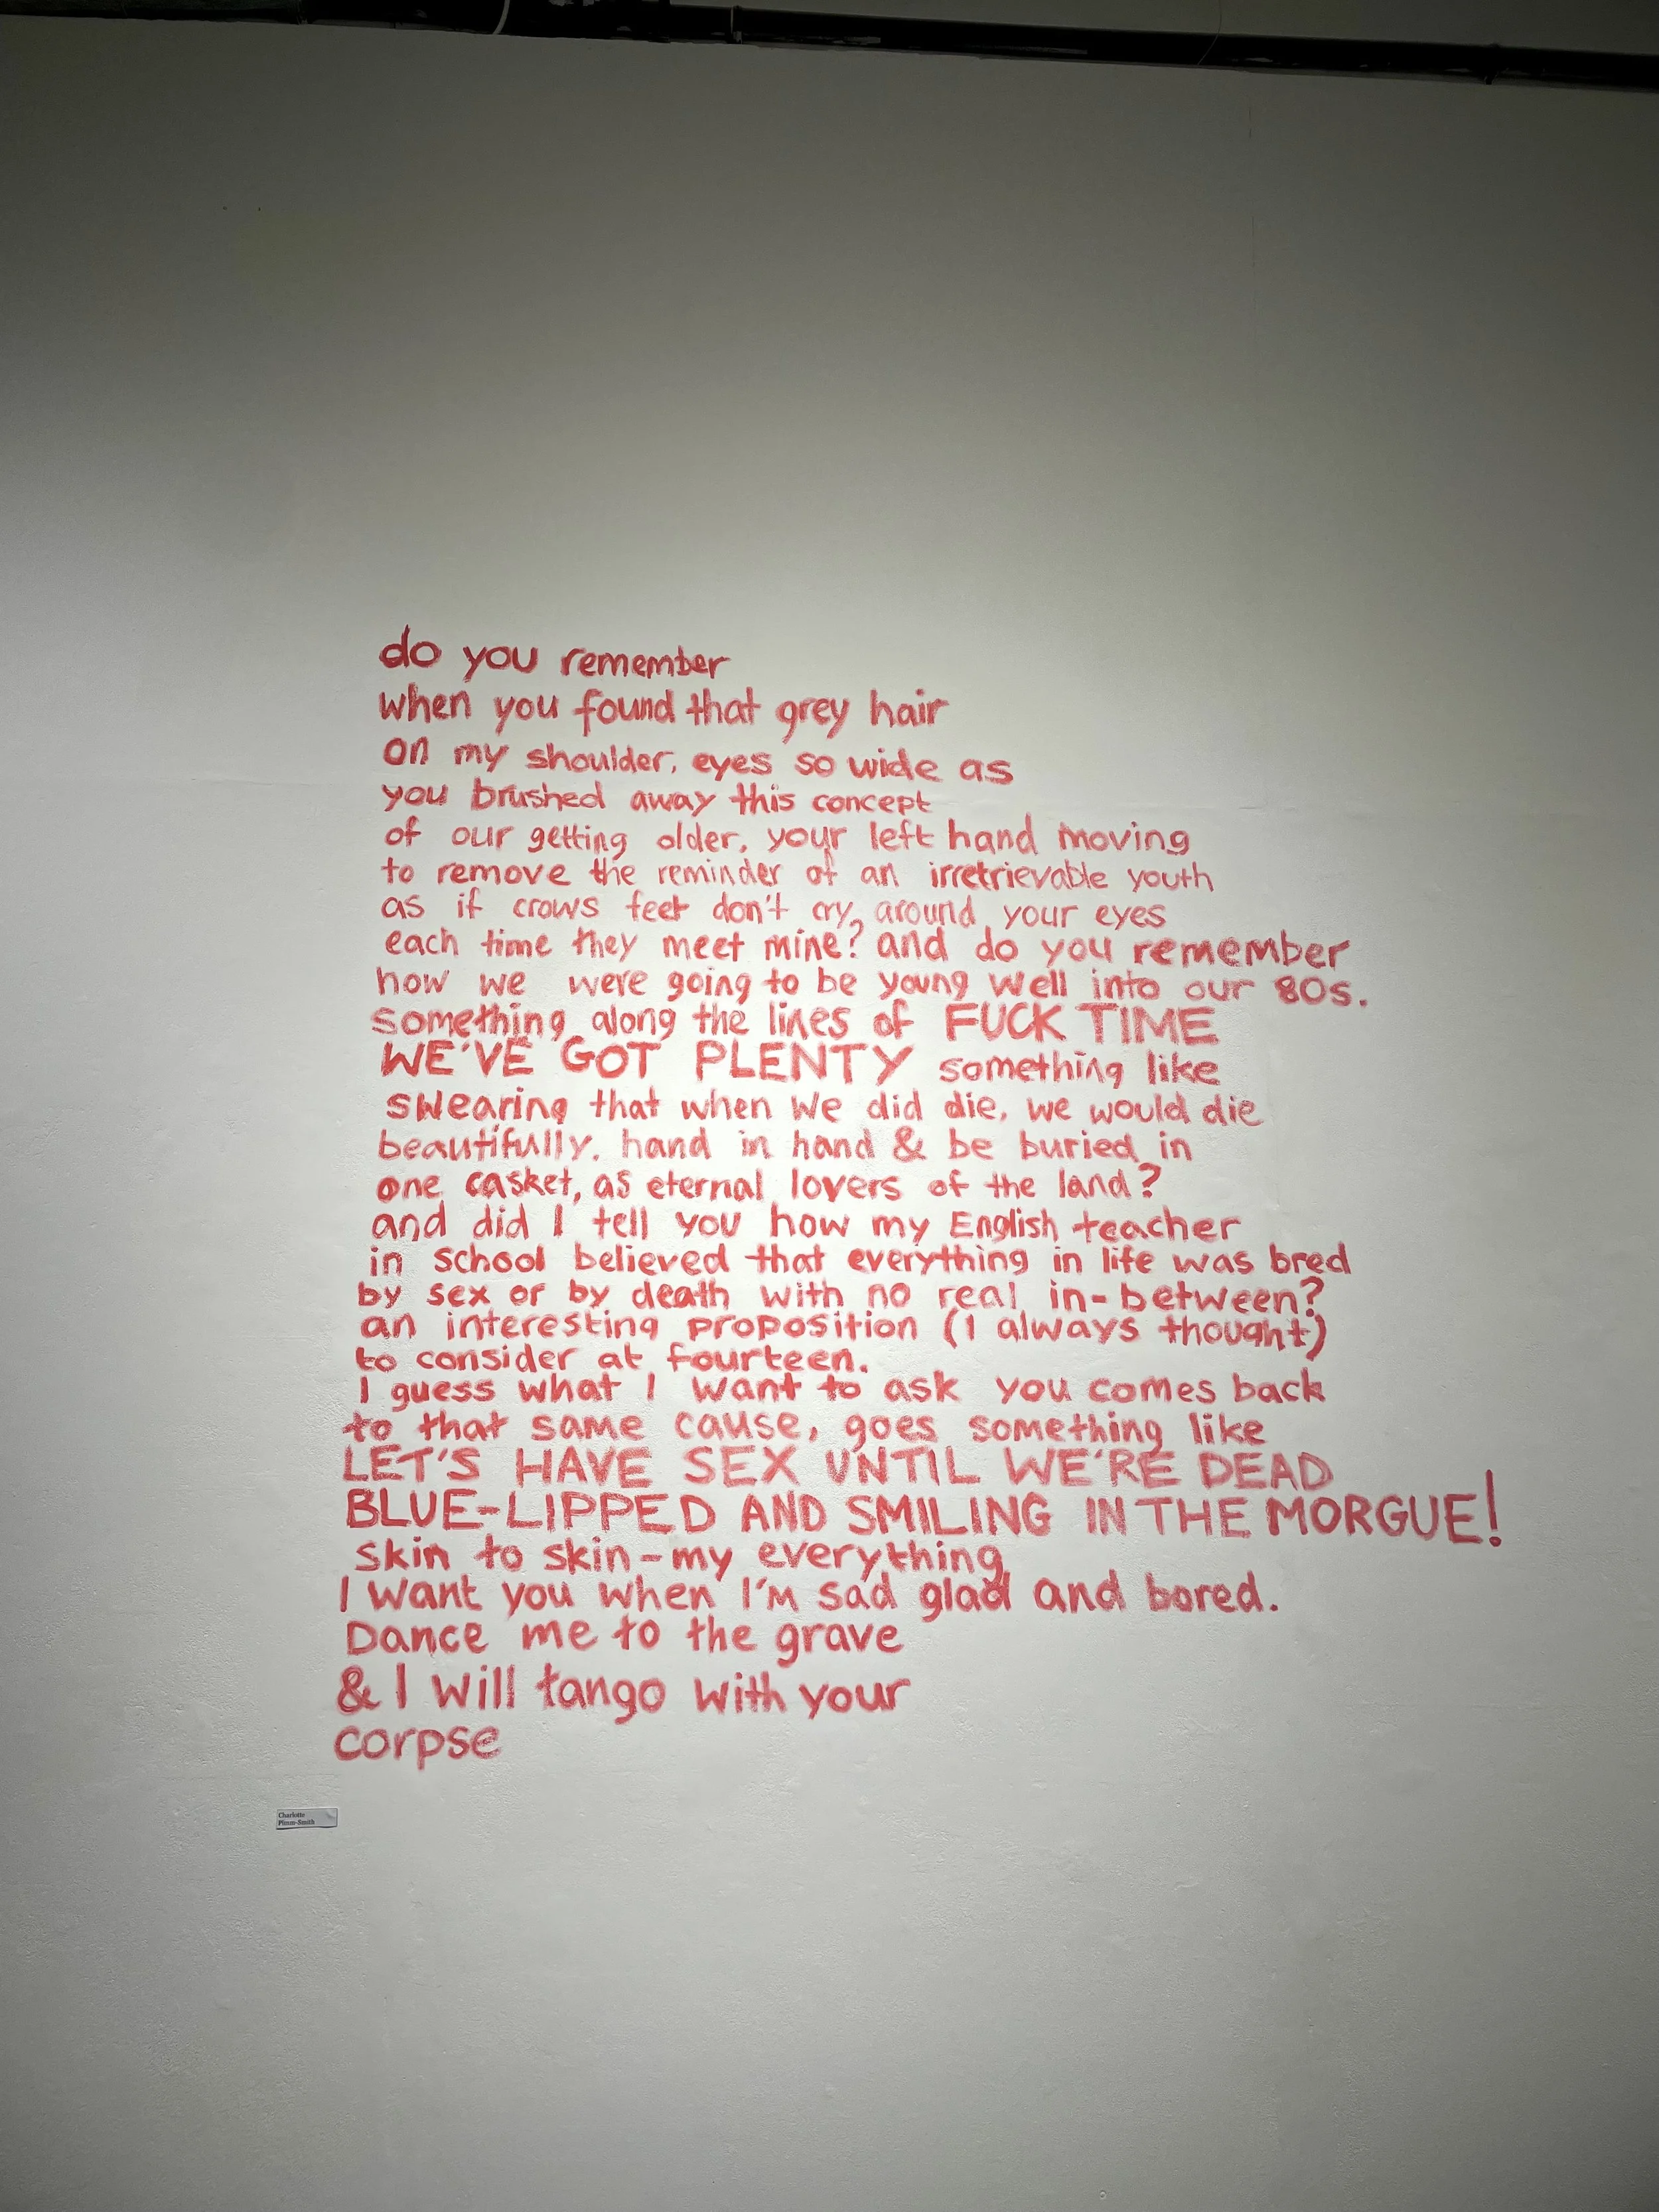 do you remember
when you found that grey hair
on my shoulder, eyes so wide as
you brushed away this concept
of our getting older, your left hand moving
to remove the reminder of an irretrievable youth
as if crows feet don't cry, around your eyes
each time they meet mine? and do you remember
how we were going to be young well into our 80s.
something along the lines of FUCK TIME
WE'VE GOT PLENTY something like
swearing that when we did die, we would die
beautifully. hand in hand & be buried in
one casket, as eternal lovers of the land?
and did I tell you how my English teacher
in school believed that everything in life was bred
by sex or by death with no real in-between?
an interesting proposition (I always thought)
to consider at fourteen.
I guess what I want to ask you comes back
to that same cause, goes something like
LET'S HAVE SEX UNTIL WE'RE DEAD
BLUE-LIPPED AND SMILING IN THE MORGUE!
skin to skin-my everything
I want you when I'm sad glad and bored.
Dance me to the grave
& I will tango with your
corpse
Charlotte